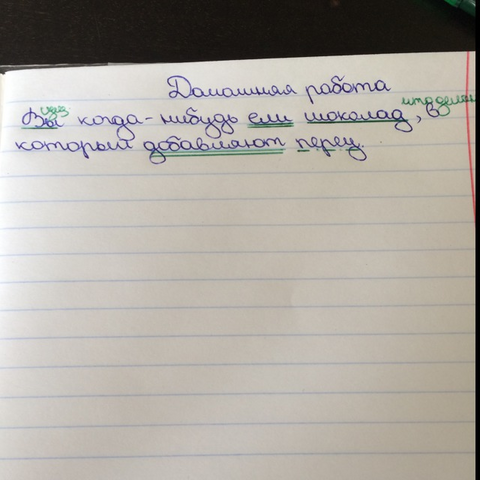 Домашняя работа
Вы когда-нибудь ели шоколад, в
который добавляют перец.